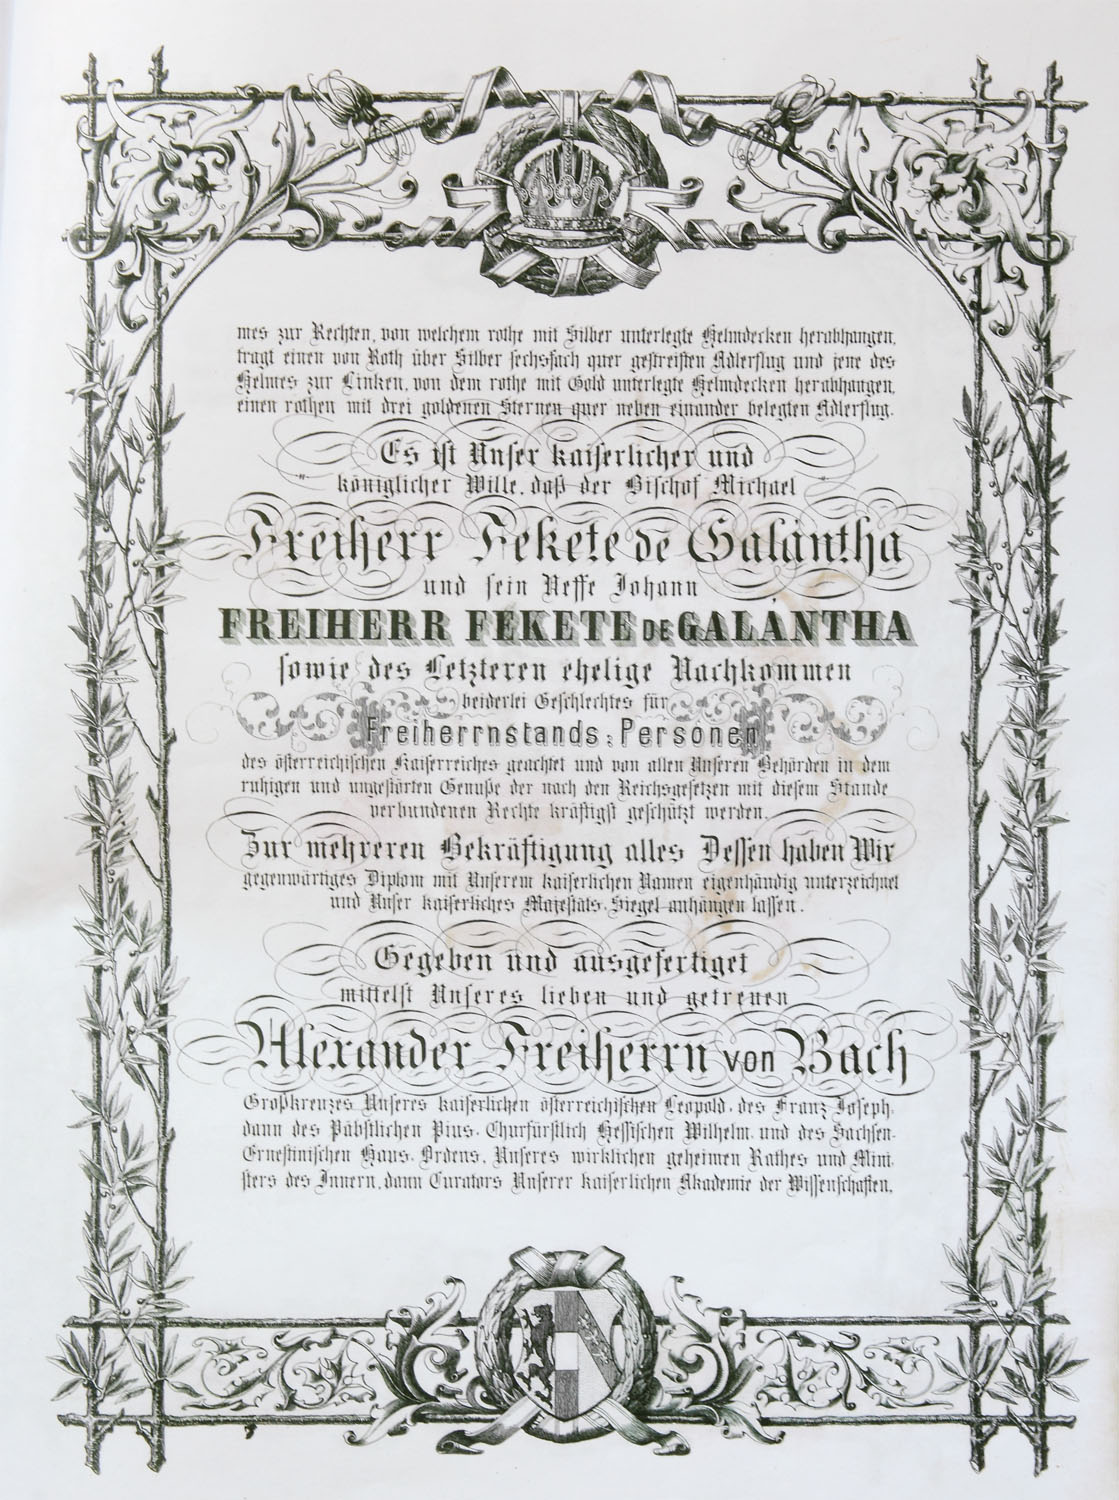 mes zur Rechten, von welchem rothe mit Silber unterlegte Helmdecken herabhangen,
tragt einen von Roth über Silber sechsfach quer gestreiften Adlerflug und jene des
Helmes zur Linken, von dem rothe mit Gold unterlegte Helmdecken herabhangen,
einen rothen mit drei goldenen Sternen quer neben einander belegten Adlerflug.
Es ist Unser kaiserlicher und
königlicher Wille, daß der Bischof Michael
Freiherr Fekete de Galántha
und sein Neffe Johann
FREIHERR FEKETE DE GALÁNTHA
sowie des Letzteren ehelige Nachkommen
beiderlei Geschlechtes für
Freiherrnstands-Personen
des österreichischen Kaiserreiches geachtet und von allen Unseren Behörden in dem
ruhigen und ungestörten Genuße der nach den Reichsgesetzen mit diesem Stande
verbundenen Rechte kräftigst geschützt werden.
Zur mehreren Bekräftigung alles Dessen haben Wir
gegenwärtiges Diplom mit Unserem kaiserlichen Namen eigenhändig unterzeichnet
und Unser kaiserliches Majestäts-Siegel anhängen lassen.
Gegeben und ausgefertiget
mittelst Unseres lieben und getreuen
Alexander Freiherrn von Bach
Großkreuzes Unseres kaiserlichen österreichischen Leopold- des Franz Joseph-
dann des Päbstlichen Pius- Churfürstlich Hessischen Wilhelm- und des Sachsen-
Ernestinischen Haus-Ordens, Unseres wirklichen geheimen Rathes und Mini-
sters des Innern, dann Curators Unserer kaiserlichen Akademie der Wissenschaften,